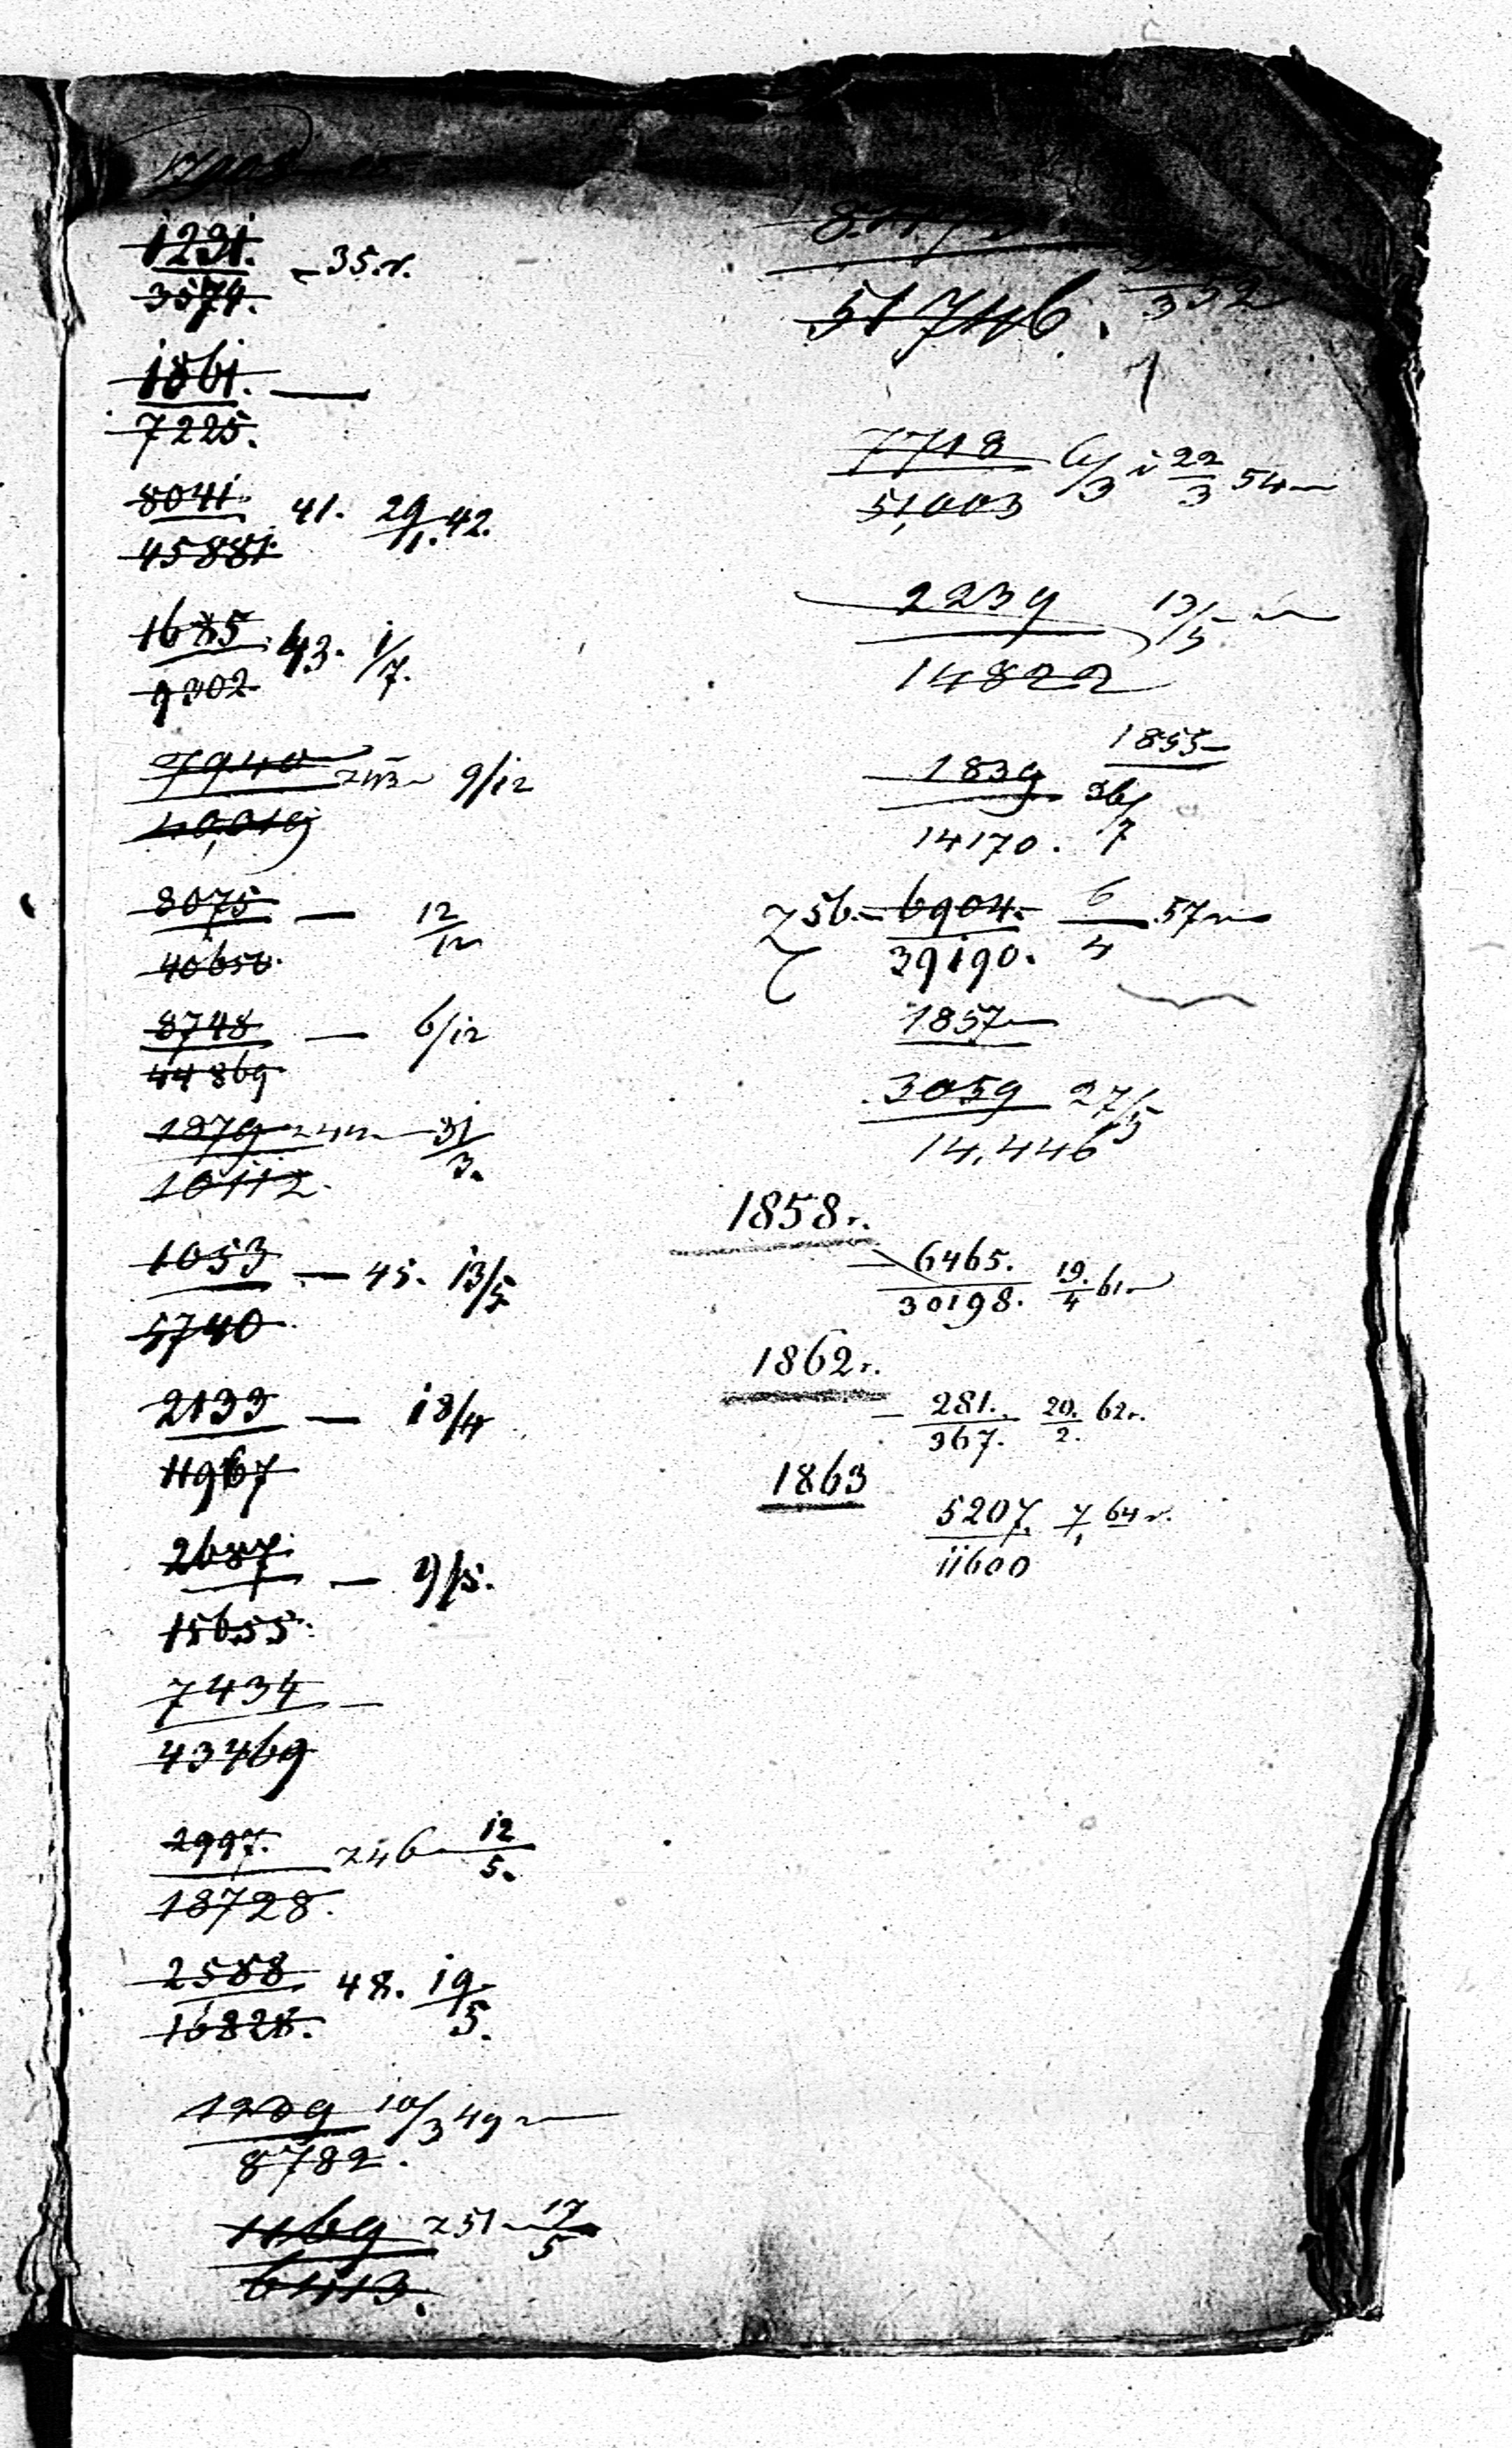 1231. – 35.r.
3574.
1861. —
7225.
8041. 41. 29/1. 42.
45881.
1685. 43. 1/7.
9302
7940 z 43 9/12
40,019
8075 — 12/12
40650.
8748 — 6/12
44869
1879 z 44 — 31/3.
10112.
1053 — 45. 13/5
5740
2133 — 18/4
11967
2687. — 9/5.
15655.
7434 —
43469
2997. z 46 12/5.
18728.
2588. 48. 19/5.
16828.
1209 10/3 49
8782.
1169 z 51 17/5
6413.
51746.
7718 6/3 i 22/3 54
51,003
2239 13/5
14822
1855
1839 36/7
14170.
z 56. – 6904. 6/4 57
39190.
1857
3059 27/5
14,446
1858 r.
— 6465. 19./4 61
30198.
1862 r.
— 281. 20./2. 62 r.
367.
1863
5207. 7/1 64 r.
11600